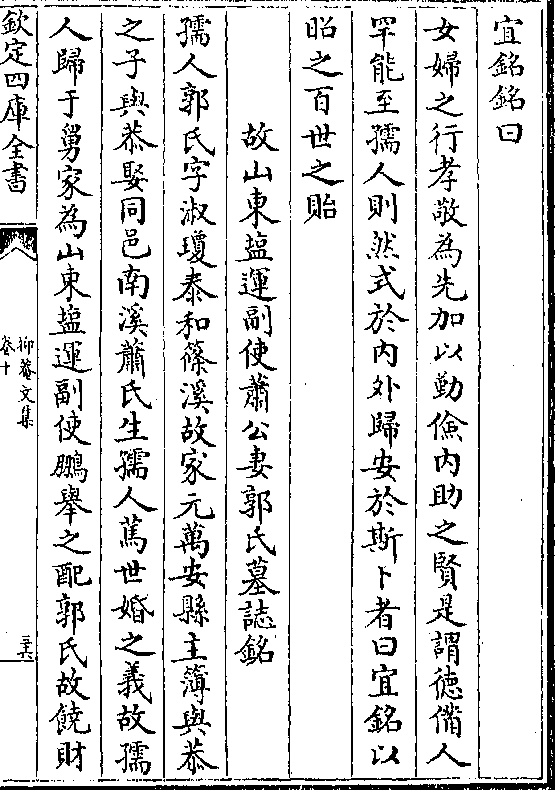 宜銘銘曰
女婦之行孝敬為先加以勤儉内助之賢是謂徳備人
罕能至孺人則然式於内外歸安於斯卜者曰宜銘以
昭之百世之貽
故山東塩運副使蕭公妻郭氏墓誌銘
孺人郭氏字淑瓊泰和篠溪故家元萬安縣主簿與恭
之子與恭娶同邑南溪蕭氏生孺人篤世婚之義故孺
人歸于舅家為山東塩運副使鵬舉之配郭氏故饒財
欽定四庫全書
抑菴文集
卷十
三六